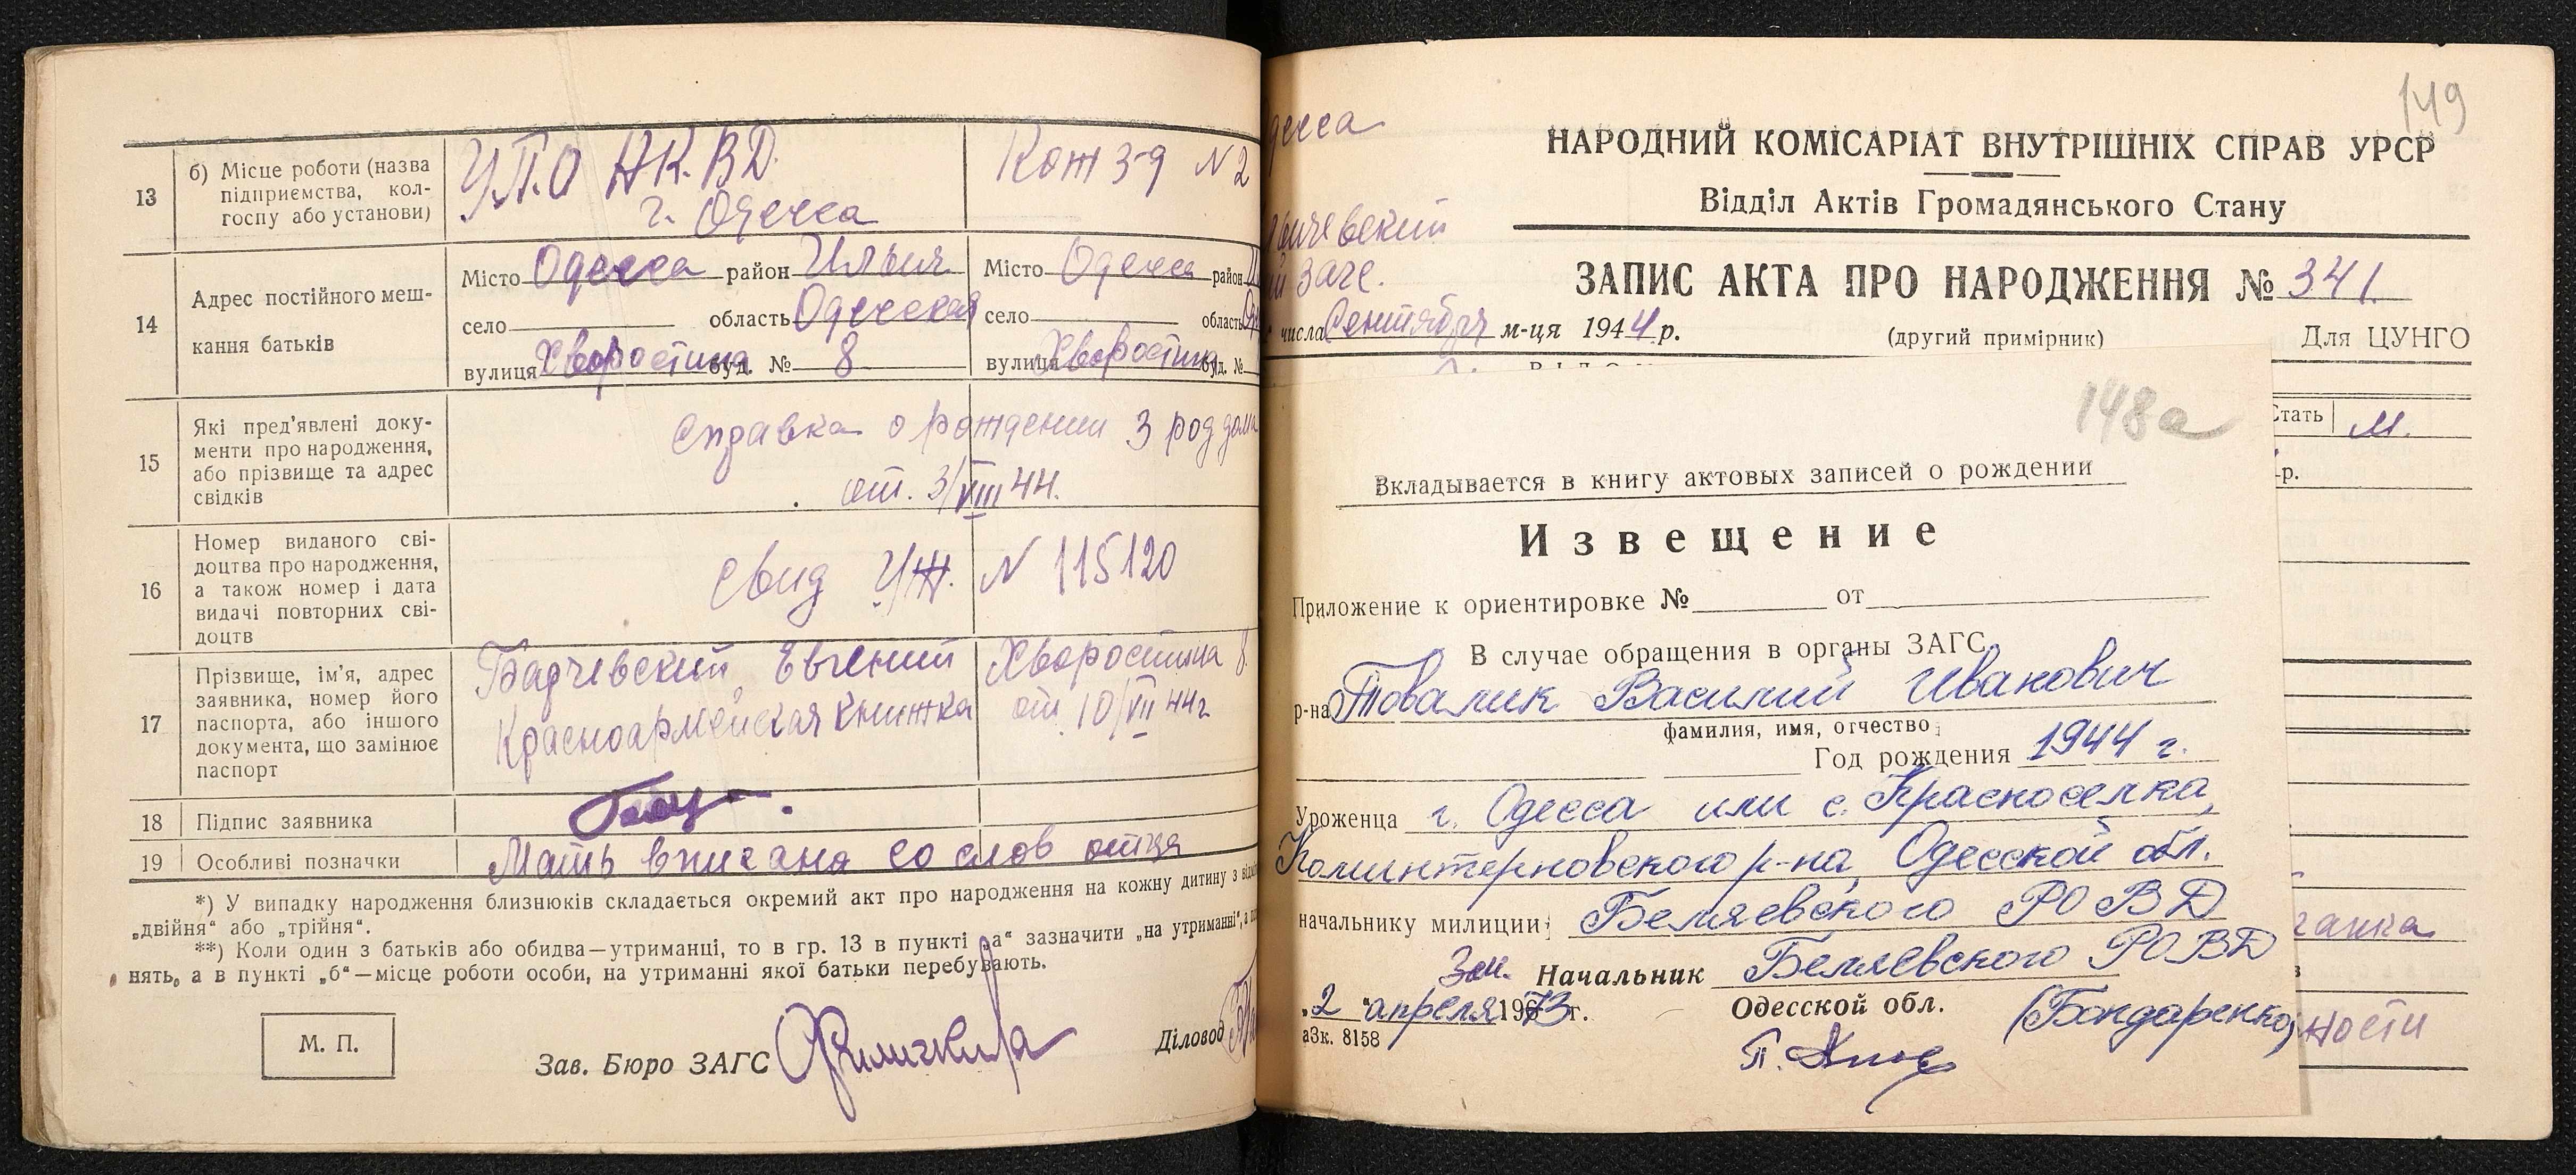 13
б) Місце роботи (назва
підприємства, кол-
госпу або установи)
У.П.О Н.К.В.Д.
г. Одесса
Кож з-д N 2
14
Адрес постійного меш-
кання батьків
Місто Одесса район Ильич
село область Одесская
вулиця Хворостина буд. № 8
Місто Одесса район
село область
вулиця Хворостина буд. №
15
Які пред’явлені доку-
менти про народження,
або прізвище та адрес
свідків
Справка о рождении 3 род дома
от. 3/VIII 44.
16
Номер виданого сві-
доцтва про народження,
а також номер і дата
видачі повторних сві-
доцтв
Свид УЖ. N 115120
17
Прізвище, ім’я, адрес
заявника, номер його
паспорта, або іншого
документа, що замінює
паспорт
Бадчевский Евгений Хворостина 8.
Красноармейская книжка от 10/VII 44г
18
Підпис заявника
19
Особливі позначки
Мать вписана со слов отца
*) У випадку народження близнюків складається окремий акт про народження на кожну дитину з
„двійня“ або „трійня“.
**) Коли один з батьків або обидва—утриманці, то в гр. 13 в пункті „а“ зазначити „на утриманні“,
нять, а в пункті „б“—місце роботи особи, на утриманні якої батьки перебувають.
М. П.
Зав. Бюро ЗАГС
Діловод
149
десса
НАРОДНИЙ КОМІСАРІАТ ВНУТРІШНІХ СПРАВ УРСР
Відділ Актів Громадянського Стану
ичевский
й Загс.
ЗАПИС АКТА ПРО НАРОДЖЕННЯ № 341.
числа Сентября м-ця 1944 р.
(другий примірник)
Для ЦУНГО
Стать м.
-р.
148а
Вкладывается в книгу актовых записей о рождении
Извещение
Приложение к ориентировке № от
В случае обращения в органы ЗАГС
р-на Товалик Василий Иванович
фамилия, имя, отчество
Год рождения 1944 г.
Уроженца г. Одесса или с. Красноселка,
Коминтерновского р-на, Одесской обл.
начальнику милиции Беляевского РОВД
Зам. Начальник Беляевского РОВД
„2 “ апреля 1973 г.
Одесской обл.
(Бондаренко)
аЗк. 8158
ганка
ности